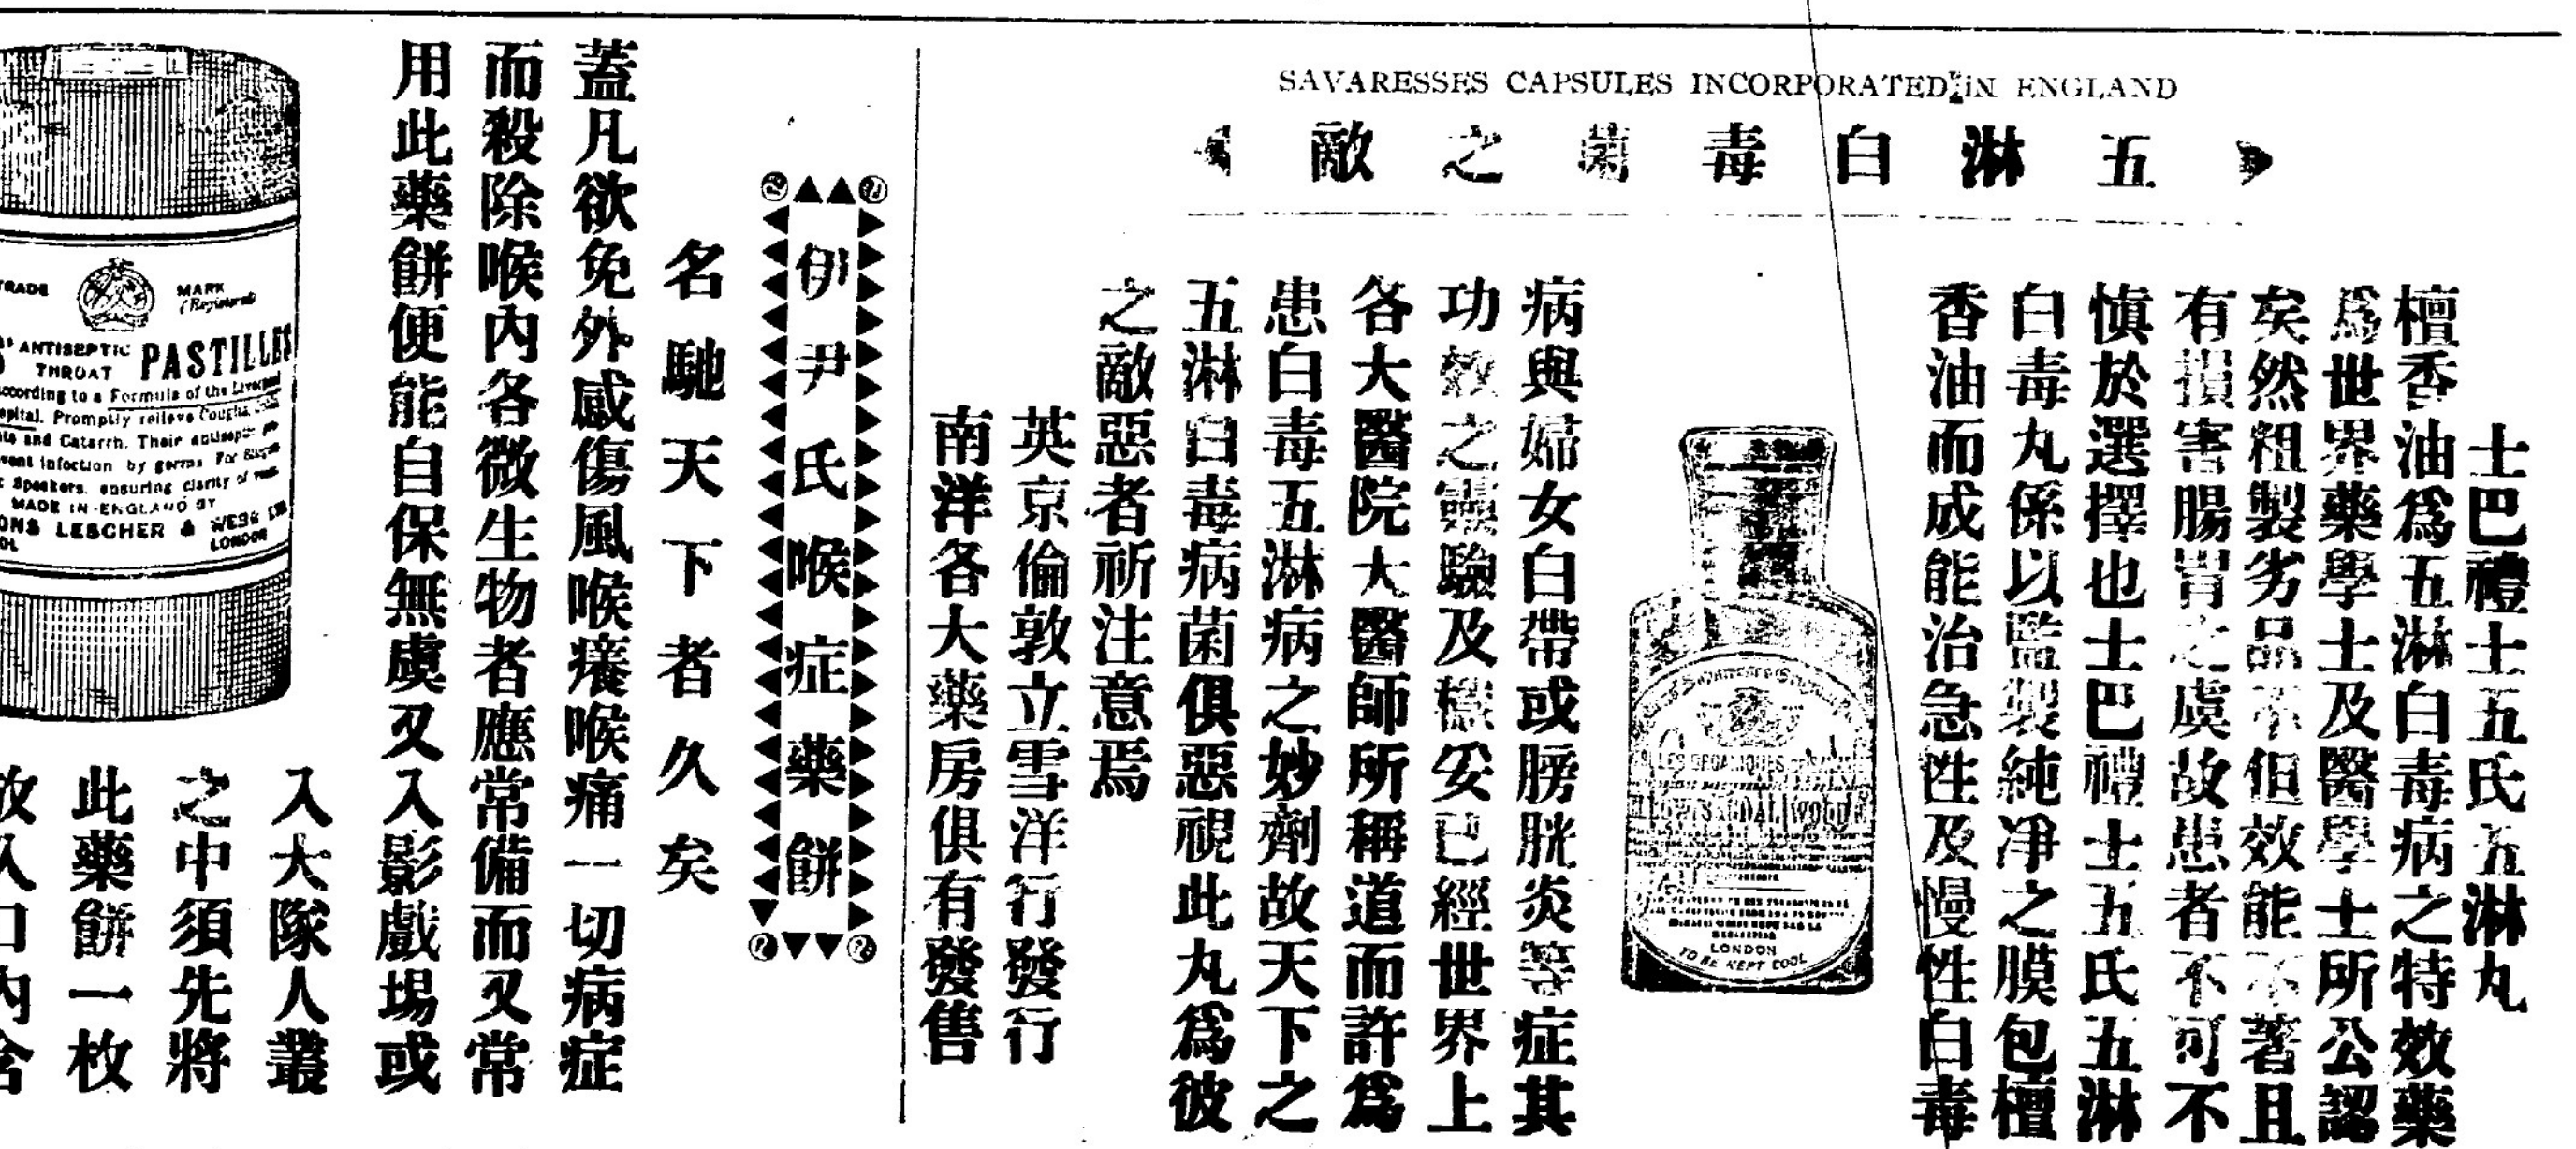 SAVARESSES CAPSULES INCORPORATED IN ENGLAND
五淋白毒菌之敵
士巴禮士五氏五淋丸
檀香油爲五淋白毒病之特效藥
爲世界藥學士及醫學士所公認
矣然粗製劣品不但效能不著且
有損害腸胃之虞故患者不可不
慎於選擇也士巴禮士五氏五淋
白毒丸係以監製純凈之膜包檀
香油而成能治急性及慢性白毒
LONDON
TO BE KEPT COOL
病與婦女白帶或膀胱炎等症其
功效之靈驗及穩妥已經世界上
各大醫院大醫師所稱道而許爲
患白毒五淋病之妙劑故天下之
五淋白毒病菌俱惡視此丸爲彼
之敵惡者祈注意焉
英京倫敦立雪洋行發行
南洋各大藥房俱有發售
伊尹氏喉症藥餅
名馳天下者久矣
蓋凡欲免外感傷風喉癢喉痛一切病症
而殺除喉內各微生物者應常備而又常
用此藥餅便能自保無虞又入影戲場或
入大隊人叢
之中須先將
此藥餅一枚
放入口內含
TRADE MARK
ANTISEPTIC
THROAT PASTILLES
according to a Formula of the Liverpool
Promptly relieve Coughs
and Catarrh. Their antiseptic
infection by germs For
Speakers, ensuring clarity of
MADE IN ENGLAND BY
LESCHER & WEBB
LONDON